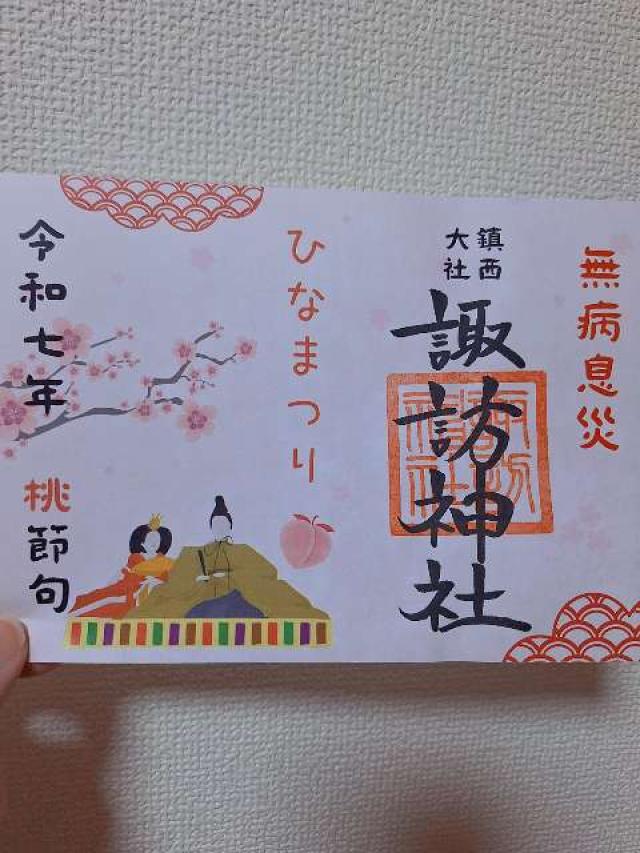 無病息災
鎮西
大社
諏訪神社
ひなまつり
令和七年
桃節句